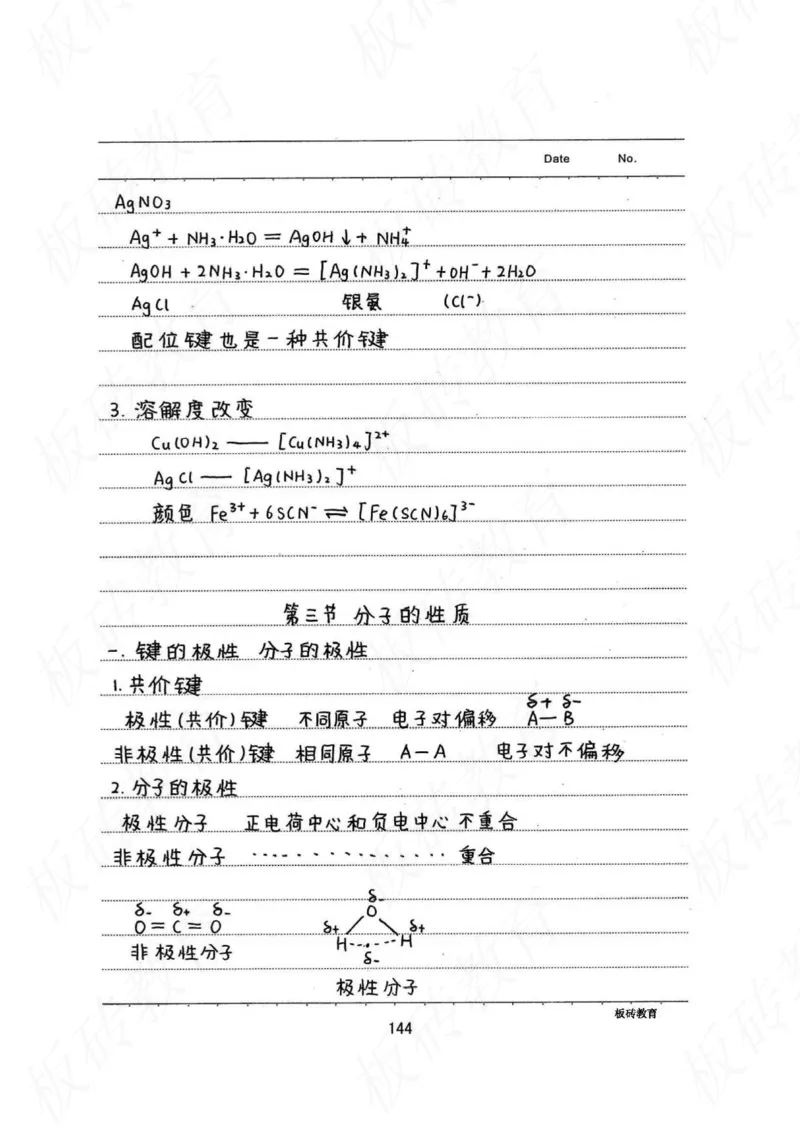 Date No.
AgNO3
Ag⁺ + NH3·H2O = AgOH↓ + NH4⁺
AgOH + 2NH3·H2O = [Ag(NH3)2]⁺ + OH⁻ + 2H2O
AgCl 银氨 (Cl⁻)
配位键也是一种共价键
3. 溶解度改变
Cu(OH)2 —— [Cu(NH3)4]²⁺
AgCl —— [Ag(NH3)2]⁺
颜色 Fe³⁺ + 6SCN⁻ ⇌ [Fe(SCN)6]³⁻
第三节 分子的性质
一. 键的极性 分子的极性
1. 共价键
δ+ δ-
极性(共价)键 不同原子 电子对偏移 A—B
非极性(共价)键 相同原子 A—A 电子对不偏移
2. 分子的极性
极性分子 正电荷中心和负电中心不重合
非极性分子 ·············· 重合
δ- δ+ δ-
O=C=O
非极性分子
δ-
O
δ+ δ+
H H
δ-
极性分子
板砖教育
144